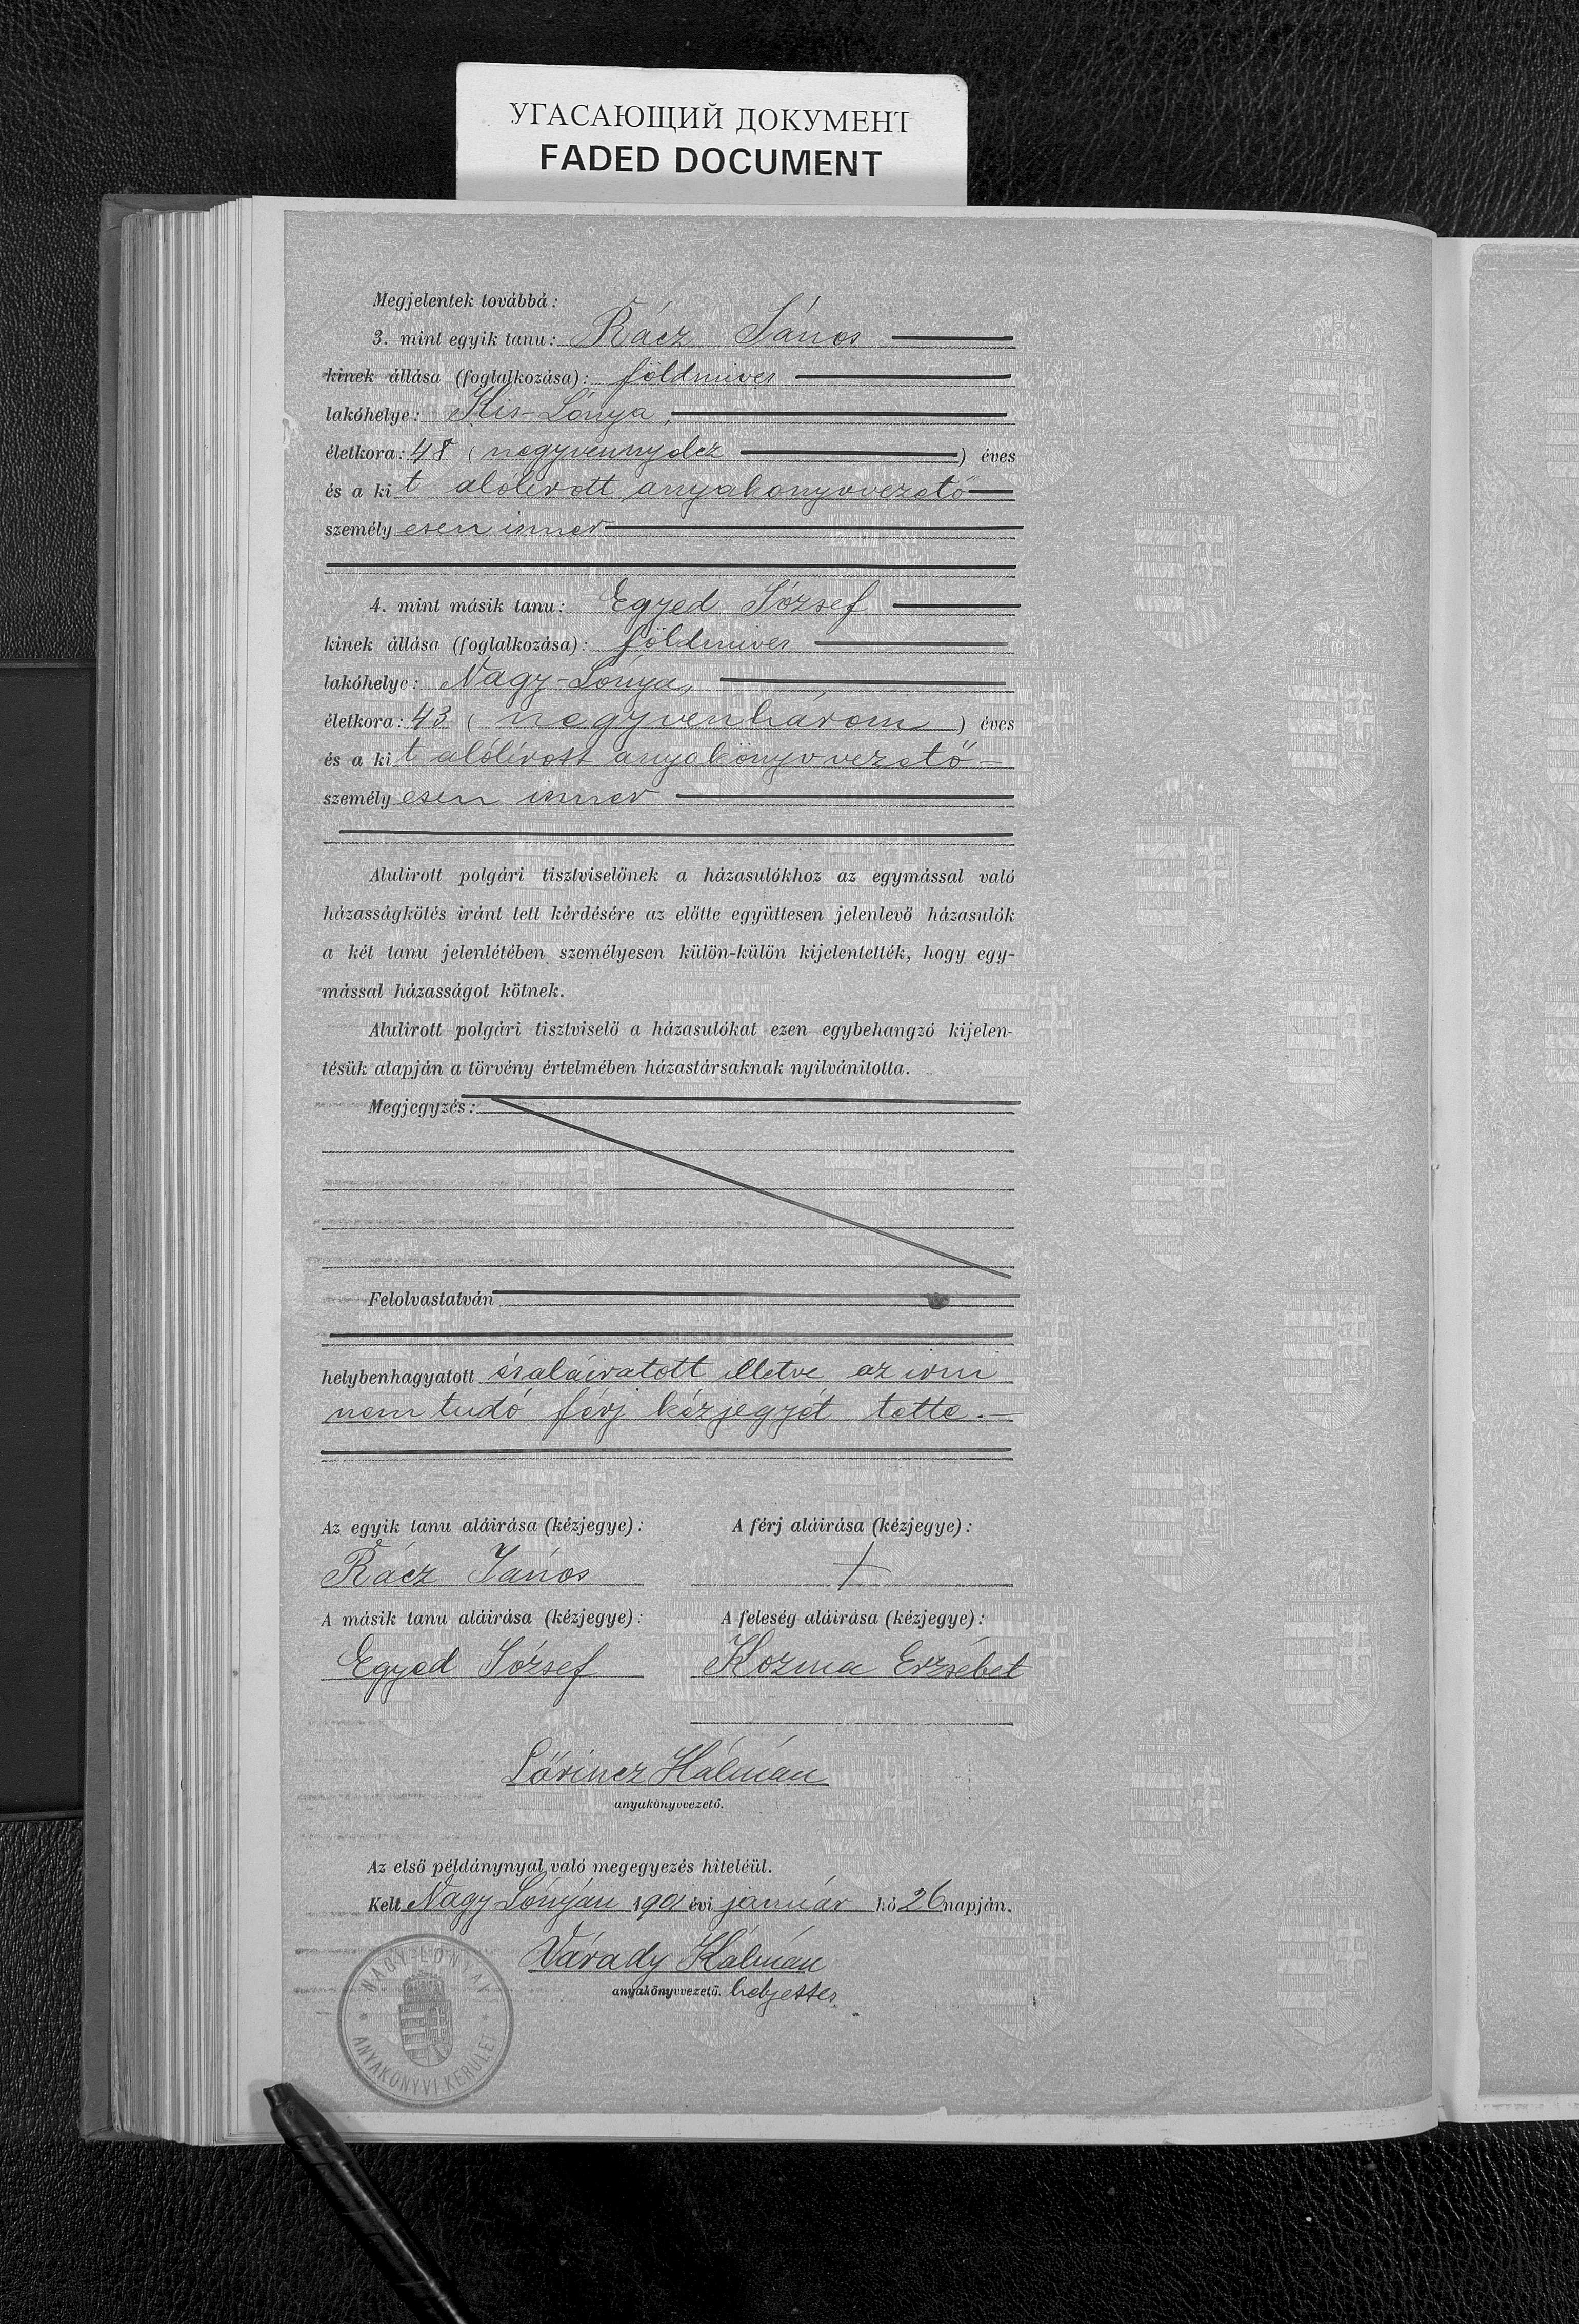 УГАСАЮЩИЙ ДОКУМЕНТ
FADED DOCUMENT
Megjelentek továbbá:
3. mint egyik tanu: Rácz János
kinek állása (foglalkozása): földmives
lakóhelye: Kis-Lónya,
életkora: 48 (negyvennyolcz) éves
és a kit alólirott anyakönyvvezető
személyesen ismer
4. mint másik tanu: Egyed József
kinek állása (foglalkozása): földmives
lakóhelye: Nagy-Lónya,
életkora: 43 (negyvenhárom) éves
és a kit alólirott anyakönyvvezető
személyesen ismer
Alulirott polgári tisztviselőnek a házasulókhoz az egymással való
házasságkötés iránt tett kérdésére az előtte együttesen jelenlevő házasulók
a két tanu jelenlétében személyesen külön-külön kijelentették, hogy egy-
mással házasságot kötnek.
Alulirott polgári tisztviselő a házasulókat ezen egybehangzó kijelen-
tésük alapján a törvény értelmében házastársaknak nyilvánitotta.
Megjegyzés:
Felolvastatván
helybenhagyatott és aláiratott illetve az irni
nem tudó férj kézjegyét tette.
Az egyik tanu aláirása (kézjegye): A férj aláirása (kézjegye):
Rácz János +
A másik tanu aláirása (kézjegye): A feleség aláirása (kézjegye):
Egyed József Kozma Erzsébet
Lőrincz Kálmán
anyakönyvvezető.
Az első példánynyal való megegyezés hiteléül.
Kelt Nagy Lónyán 1901 évi január hó 26 napján.
Várady Kálmán
anyakönyvvezető. helyettes
NAGY LÓNYAI
ANYAKÖNYVI KERÜLET